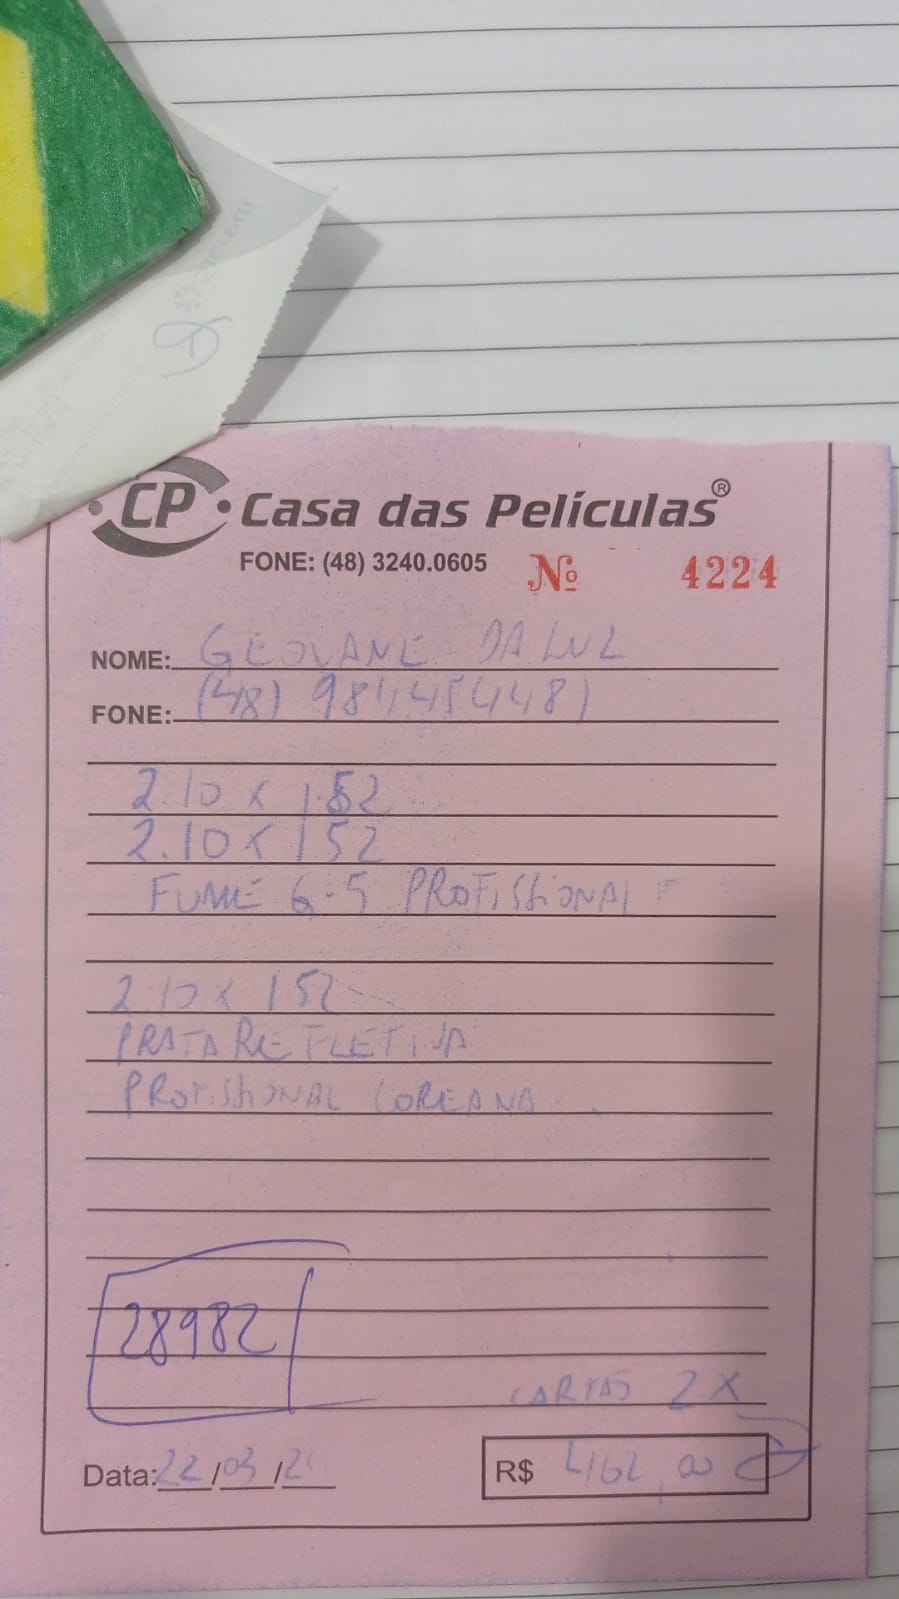 CP Casa das Películas®
FONE: (48) 3240.0605 Nº 4224
NOME: GEOVANE DA LUZ
FONE: (48) 984454481
2.10 x 1.52
2.10 x 1 52
FUME G-5 PROFISSIONAL
2.10 x 1 52
PRATA REFLETIVA
PROFISSIONAL COREANA
28982
CARTAS 2X
Data: 22/03/2
R$ 462,00